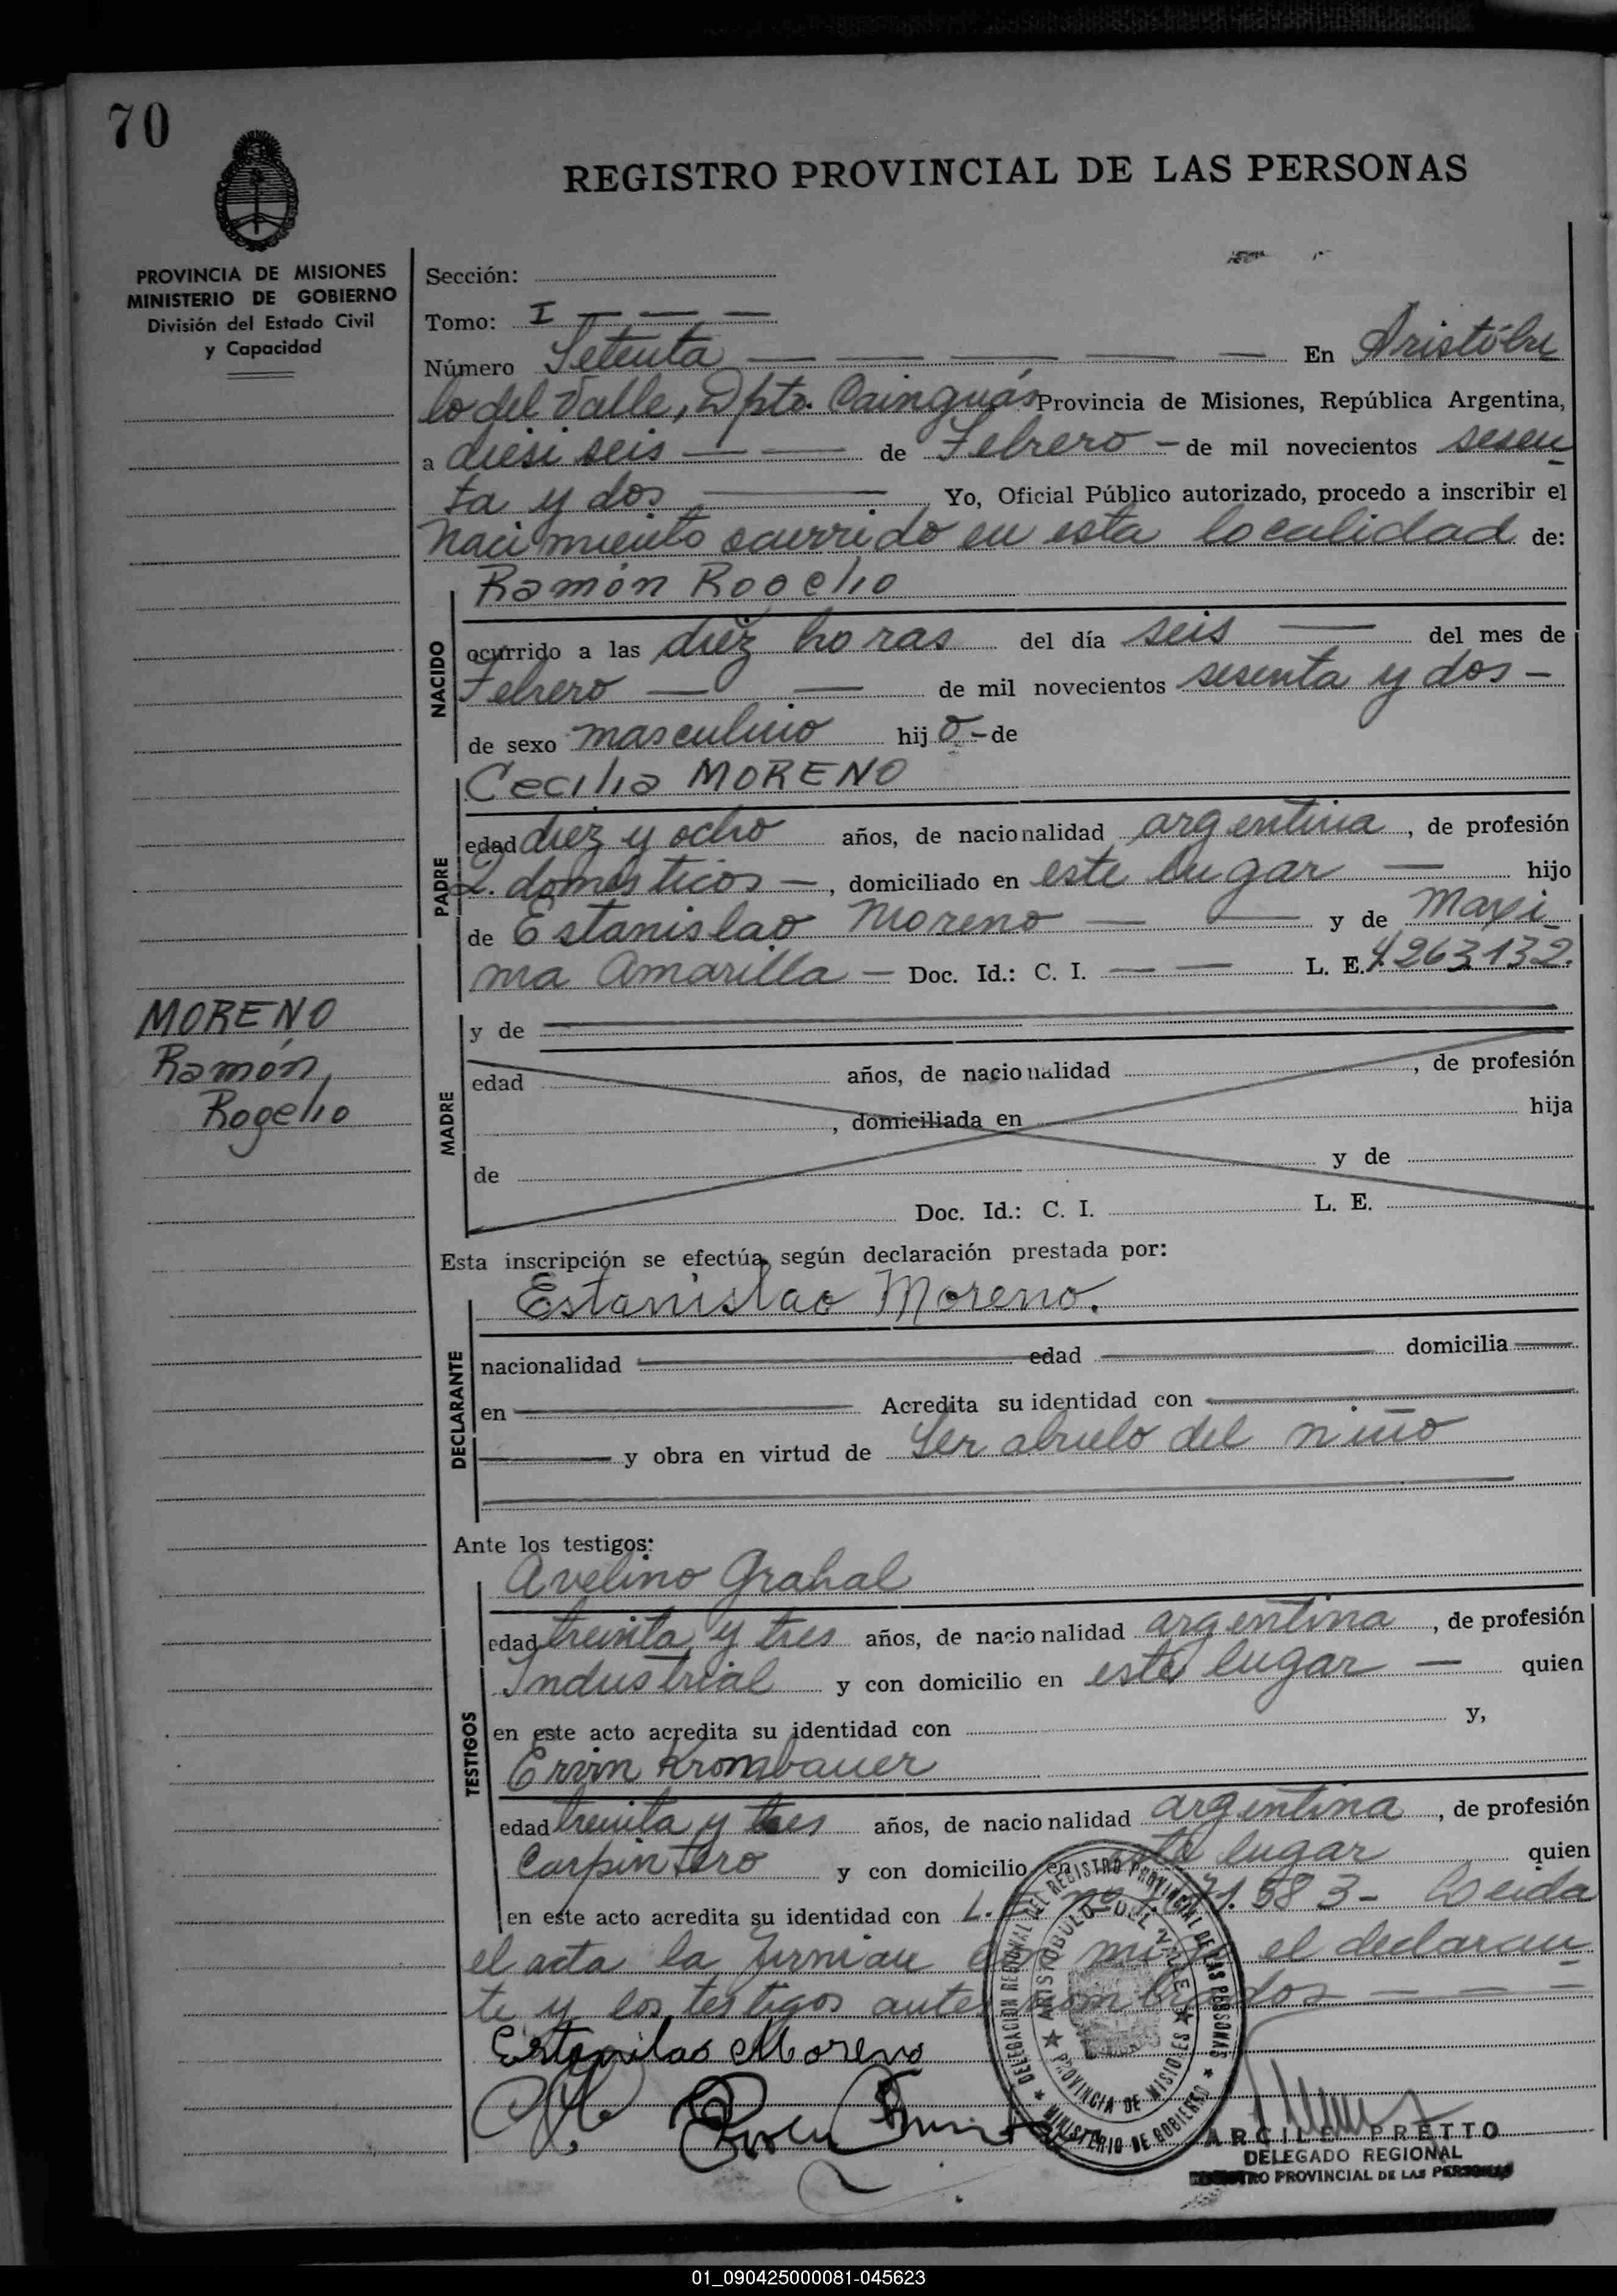 70
REGISTRO PROVINCIAL DE LAS PERSONAS
PROVINCIA DE MISIONES
MINISTERIO DE GOBIERNO
División del Estado Civil
y Capacidad
Sección:
Tomo: I — — —
Número Setenta — — — — — En Aristóbu
lo del Valle, Dpto. Cainguás Provincia de Misiones, República Argentina,
a diesi seis — — de Febrero - de mil novecientos sesen
ta y dos — Yo, Oficial Público autorizado, procedo a inscribir el
nacimiento ocurrido en esta localidad de:
Ramón Rogelio
NACIDO
ocurrido a las diez horas del día seis — del mes de
Febrero — — de mil novecientos sesenta y dos -
de sexo masculino hijo - de
Cecilia MORENO
PADRE
edad diez y ocho años, de nacionalidad argentina, de profesión
Q. domésticos —, domiciliado en este lugar — hijo
de Estanislao Moreno — — y de Maxi
ma Amarilla — Doc. Id.: C. I. — — L. E. 4.263.132.
MORENO
Ramón
Rogelio
y de
MADRE
edad años, de nacionalidad , de profesión
, domiciliada en hija
de y de
Doc. Id.: C. I. L. E.
Esta inscripción se efectúa, según declaración prestada por:
Estanislao Moreno.
DECLARANTE
nacionalidad — edad — domicilia —
en — Acredita su identidad con —
— y obra en virtud de Ser abuelo del niño
Ante los testigos:
Avelino Grahal
TESTIGOS
edad treinta y tres años, de nacionalidad argentina, de profesión
Industrial y con domicilio en este lugar — quien
en este acto acredita su identidad con y,
Ervin Krombauer
edad treinta y tres años, de nacionalidad argentina, de profesión
Carpintero y con domicilio en este lugar quien
en este acto acredita su identidad con L. E. nº 583 - Leída
el acta la firman el declaran
te y los testigos antes nombrados — — =
Estanilao Moreno
DELEGACION REGIONAL DEL REGISTRO PROVINCIAL DE LAS PERSONAS
ARISTOBULO DEL VALLE
PROVINCIA DE MISIONES
MINISTERIO DE GOBIERNO
ARCILE PRETTO
DELEGADO REGIONAL
REGISTRO PROVINCIAL DE LAS PERSONAS
01_090425000081-045623